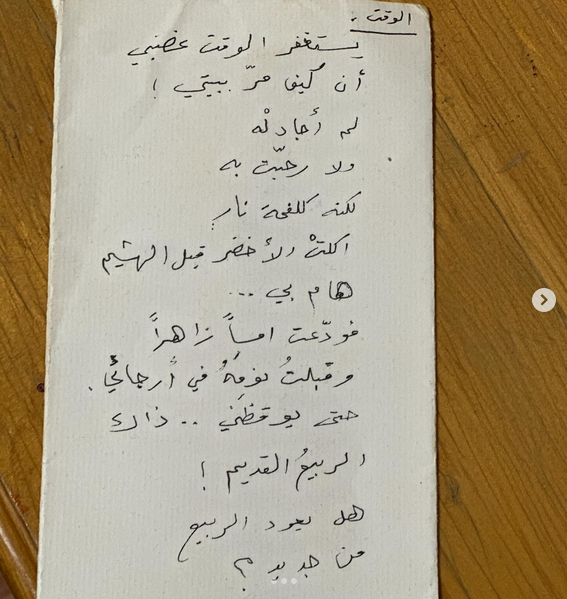 الوقت:
يستغفر الوقت غضبي
أن كيف مرّ ببيتي !
لم أجادلْه
ولا رحّبت به
لكنه كلفحة نارٍ
اكلتْ الأخضر قبل الهشيم
هام بي ...
فودّعت امساً زاهراً
وقبلتُ نومهُ في أرجائي.
حتى يوقظني .. ذاك
الربيعُ القديم !
هل يعود الربيع
من جديد ؟